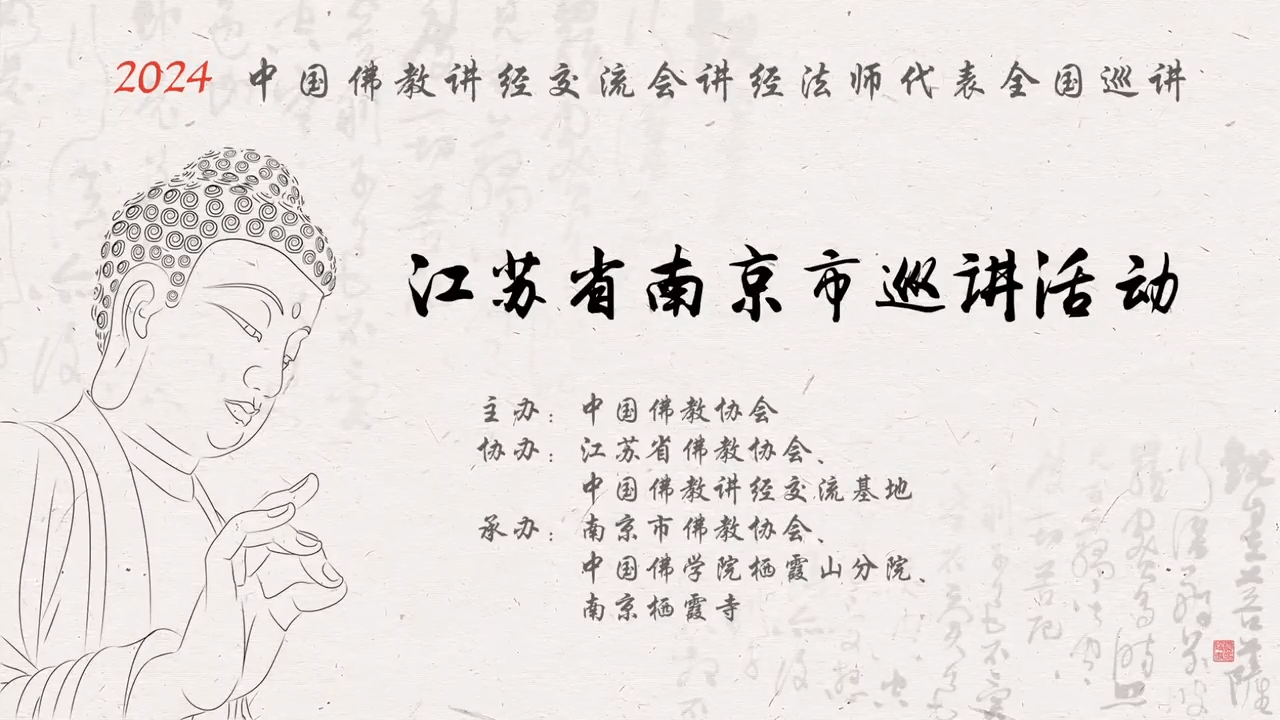 2024 中国佛教讲经交流会讲经法师代表全国巡讲
江苏省南京市巡讲活动
主办：中国佛教协会
协办：江苏省佛教协会、
中国佛教讲经交流基地
承办：南京市佛教协会、
中国佛学院栖霞山分院、
南京栖霞寺